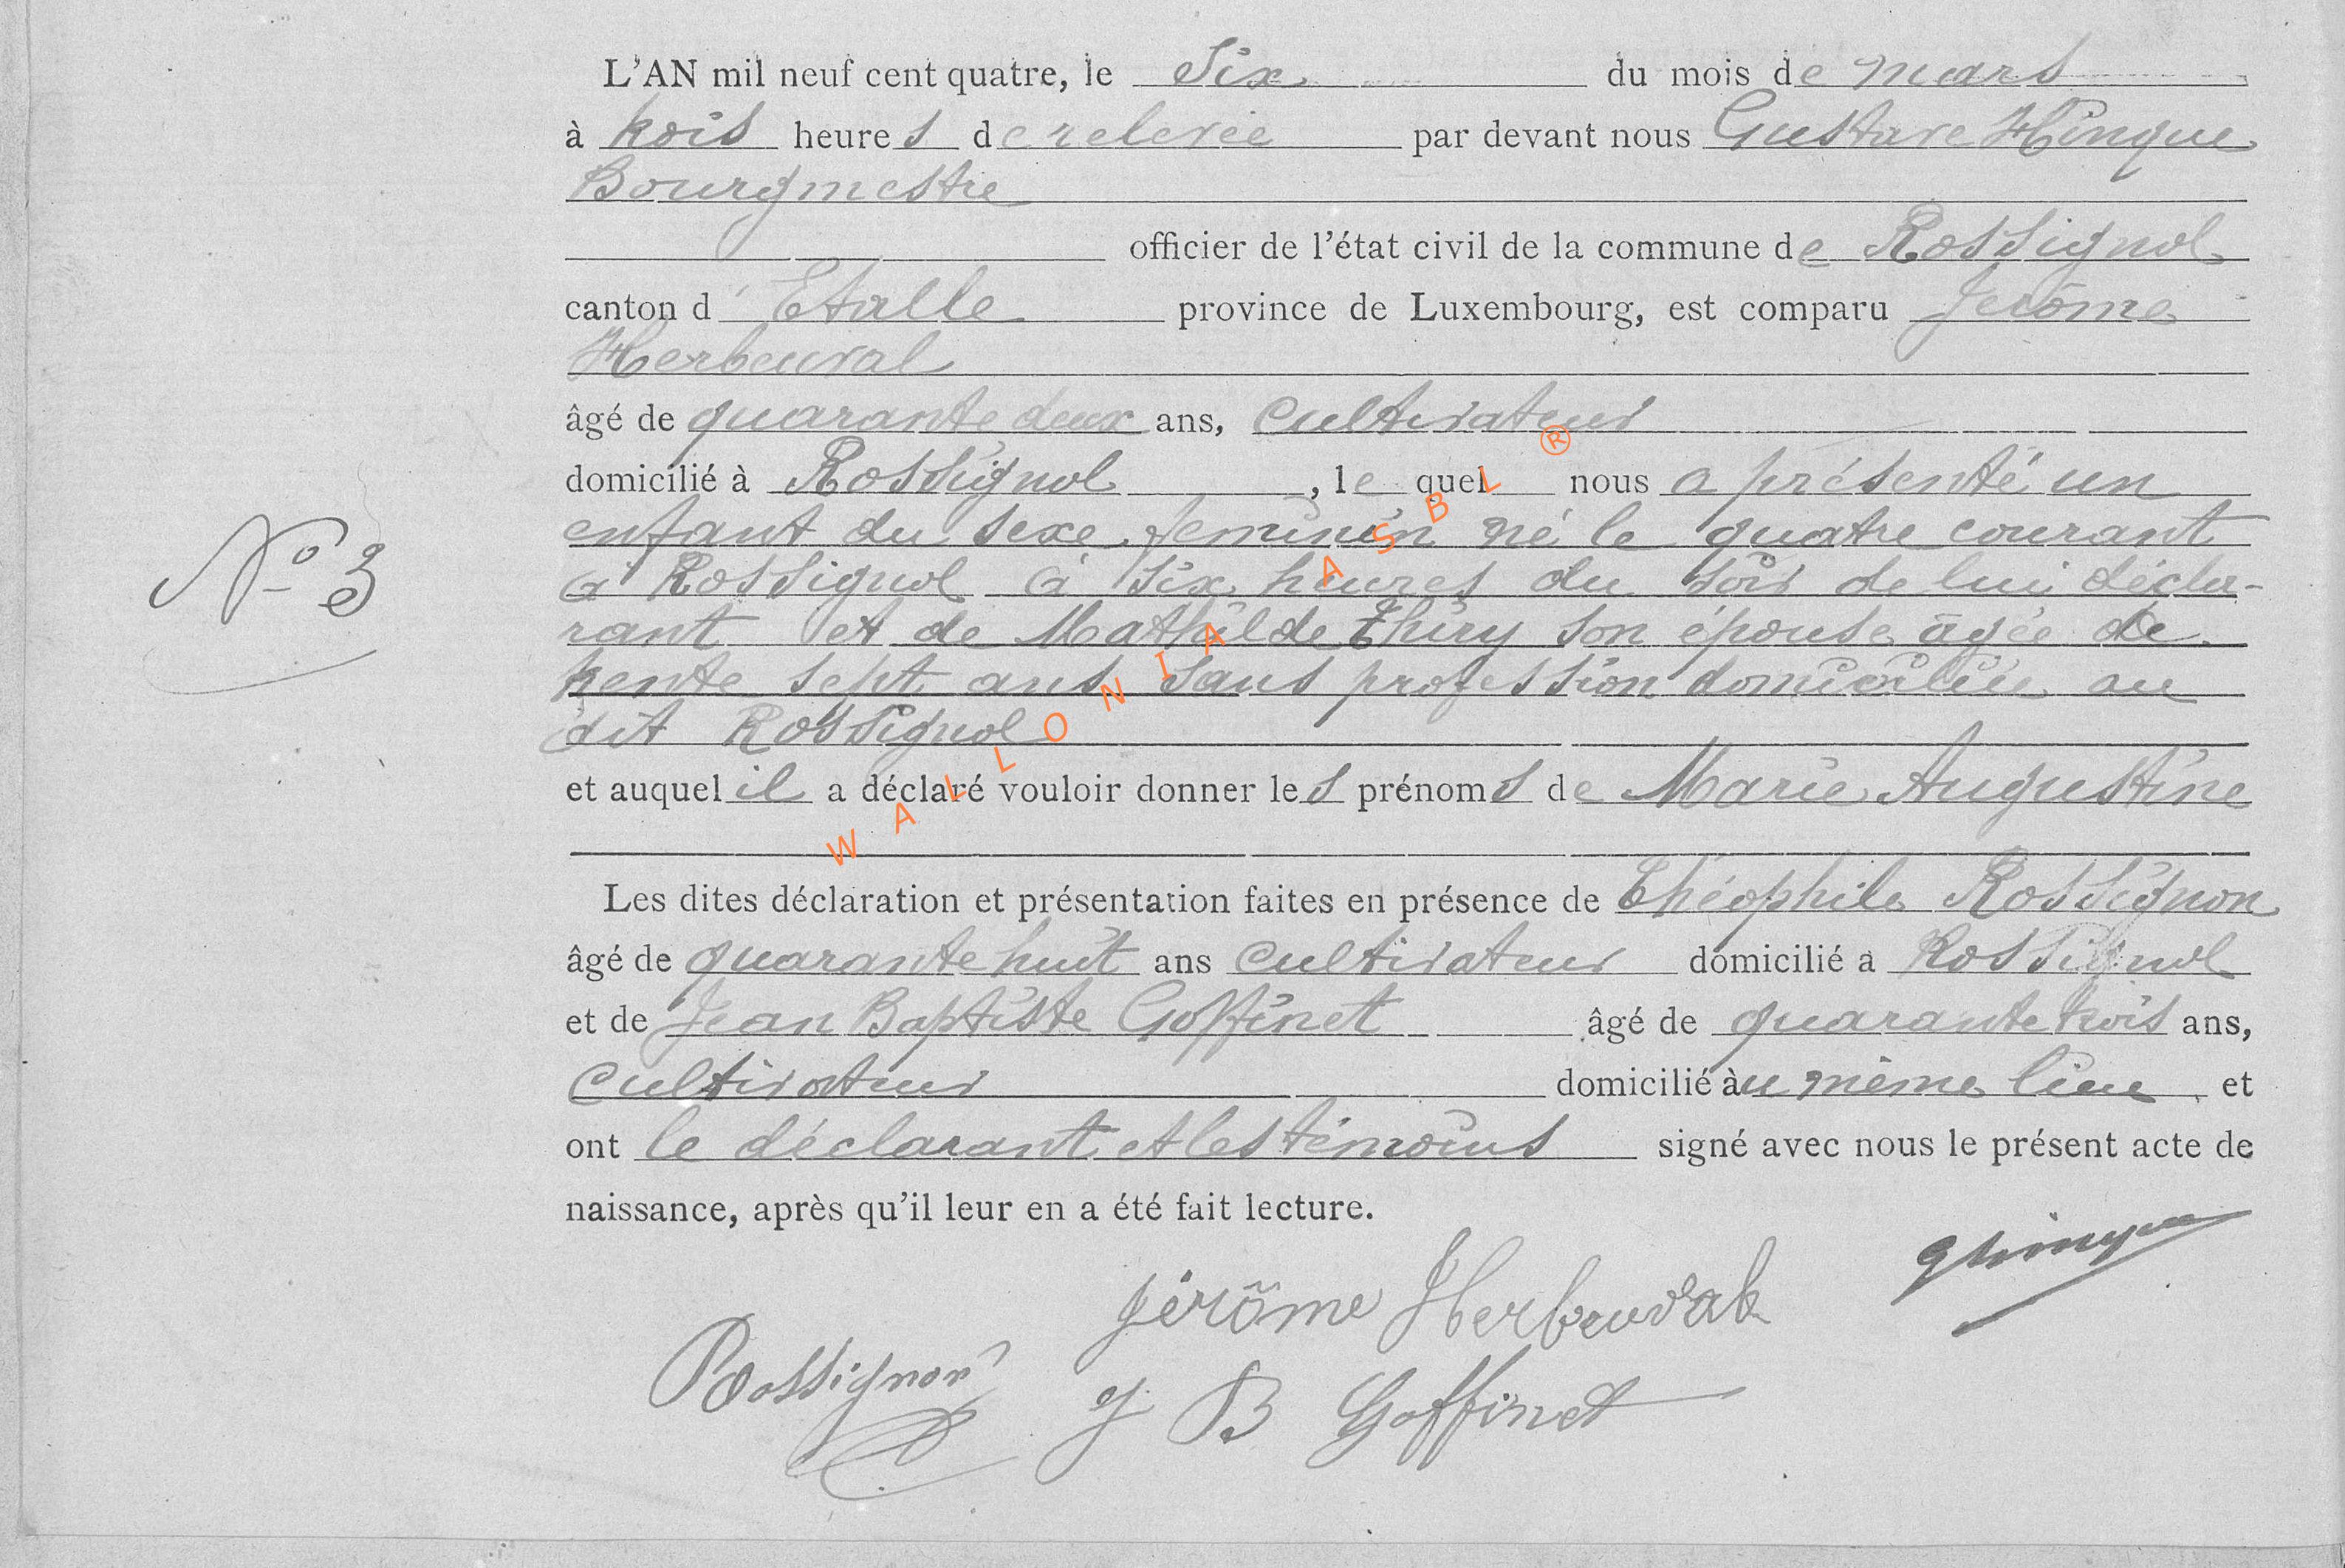 L'AN mil neuf cent quatre, le Six du mois de mars
à trois heures de relevée par devant nous Gustave Hinque
Bourgmestre
officier de l'état civil de la commune de Rossignol
canton d'Etalle province de Luxembourg, est comparu Jérôme
Herbeuval
âgé de quarante deux ans, cultivateur
domicilié à Rossignol, lequel nous a présenté un
enfant du sexe feminin né le quatre courant
à Rossignol à six heures du soir de lui décla-
rant et de Mathilde Thiry son épouse âgée de
N° 3
trente sept ans sans profession domiciliée au
dit Rossignol
et auquel il a déclaré vouloir donner les prénoms de Marie Augustine
Les dites déclaration et présentation faites en présence de Théophile Rossignon
âgé de quarante huit ans cultivateur domicilié à Rossignol
et de Jean Baptiste Goffinet âgé de quarante trois ans,
cultivateur domicilié au même lieu et
ont le déclarant et les témoins signé avec nous le présent acte de
naissance, après qu'il leur en a été fait lecture.
GHinque
Jérôme Herbeuval
Rossignon J B Goffinet
WALLONIA ASBL ®